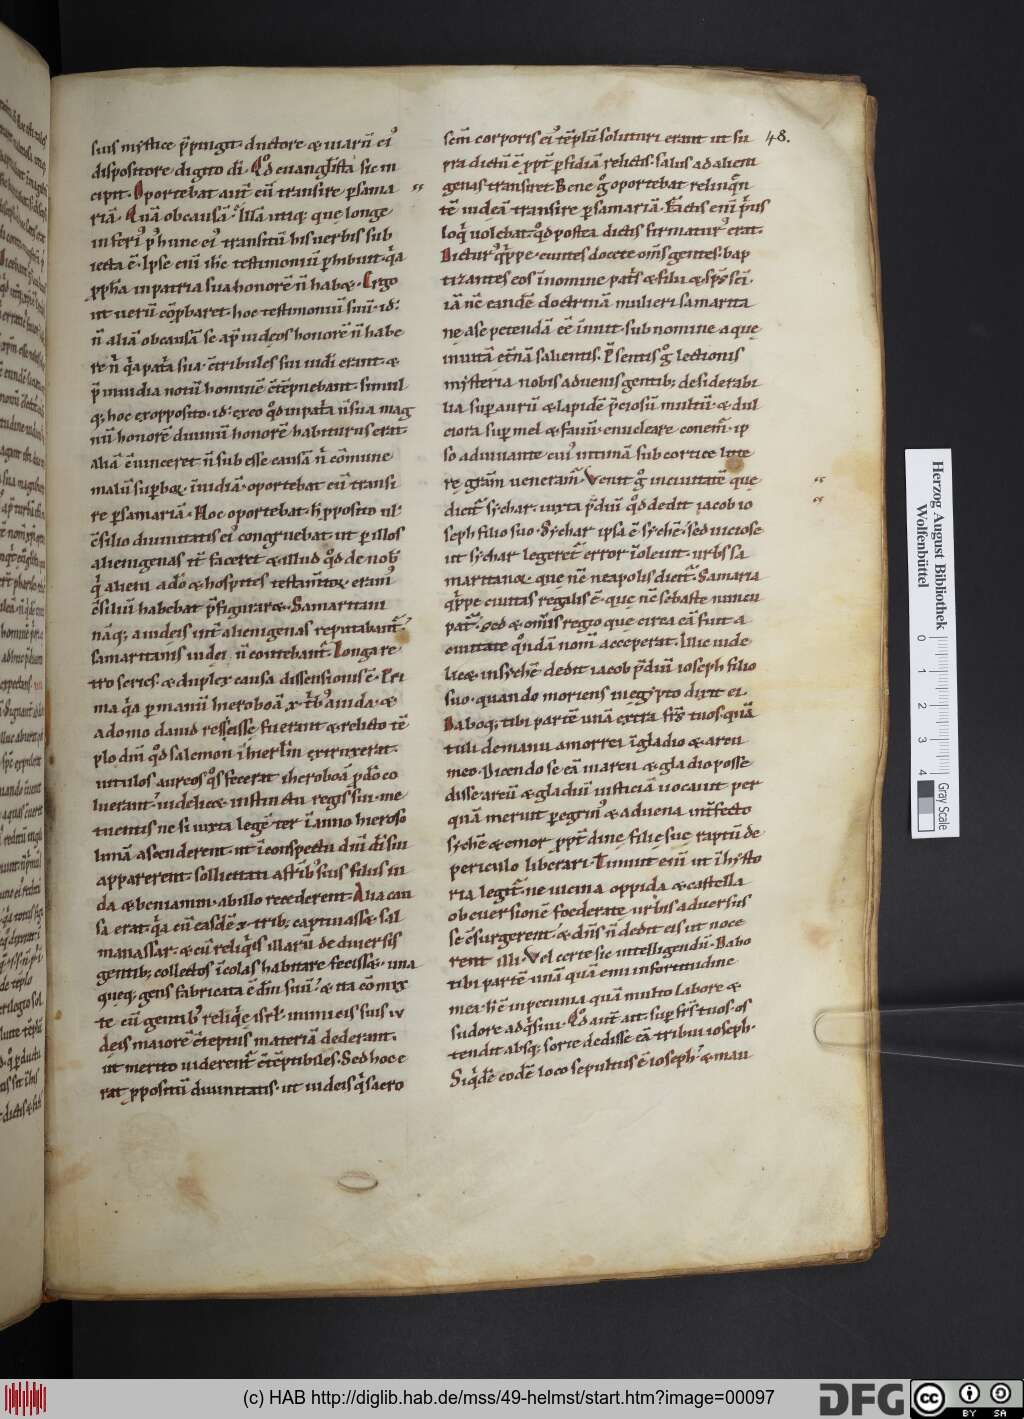 suis mystice p̄pingit· ductore & uiarū ei᷒
dispositore digito dī· Qd̓ euanglīsta sic in
cipit· Oportebat aut̄ eū transire p̱ sama
riā· Quā ob causā·
inferi᷒ p᷒ hunc ei᷒ transitū· his uerbis sub
iecta ē· Ipse enī ih̄c testimoniū p̱hibuit· q̓a
pph̄a in patria sua honorē n̄ hab&· Ergo
ut uerū cōp̱baret· hoc testimoniū suū· id·
n̄ aliā ob causā se ap̄ iudeos honorē n̄ habe
re n̓ q̓a pat̓a sua· c̄tribules sui iudi erant· &
p̄ inuidia notū hominē c̄tēpnebant· simul
q; hoc ex opposito· id· ex eo qd̓ in pat̓a n̄ sua mag
nū honorē diuinū honorē habiturus erat·
aliā c̄uinceret n̄ subesse causā n̓ cōmune
malū sup̱bo&· īuidiā· oportebat eū transi
re p̱ samariā· Hoc oportebat·
c̄silio diuinitatis ei᷒ congruebat· ut p̱ illos
alienigenas it̄ faceret & illud qd̓ de nob̄
q̓ alieni a dō & hospites testam̄tox eram᷒
c̄siliū habebat p̄figurar&· Samaritani
nāq; a iudeis int̄ alienigenas reputabant̄·
samaritanis iudei n̄ coutebant̄· Longa re
tro series· & duplex causa dissensionis ē· Pri
ma q̓a p̱ manū hieroboā x· trib᷒ a iuda· &
a domo dauid resseisse fuerant· & relicto tē
plo dn̄i qd̓ salemon ī hierl̄m extruxerat·
uitulos aureos q̓s fecerat iheroboā p̱ dō co
luerant· uidelic& instinctu regis sui· me
tuentis ne si iuxta legē ter ī anno hieroso
limā ascenderent· ut ī conspectu dn̄i dī sui
apparerent· sollicitati a fr̄ib᷒ suis filiis iu
da & beniamin· ab illo recederent· Alia cau
sa erat· q̓a eū easdē x· trib; captiuass& sal
manassar· & cū reliq̓is illarū de diuersis
gentib; collectos īcolas habitare feciss&· una
queq; gens fabricata ē dm̄ suū· & ita cōmix
te cū gentib᷒ reliq̓e isrl̄· inimicis suis iu
deis maiorē c̄teptus materiā dederant·
ut merito uiderent̄ c̄tēptibiles· Sed hoc e
rat ppositū diuinitatis· ut iudeis q̓ sacro
sem̄ corporis ei᷒ tēplū soluturi erant ut su 48.
pra dictū ē ppt̄ p̱fidiā relictis· salus ad alieni
genas transiret· Bene g̓ oportebat relinq̄n
tē iudeā transire p̱ samariā. Factis enī p̓us
loq̓ uolebat· qd̓ postea dictis firmatur᷒ erat·
Dictur᷒ q̓ppe· euntes docete om̄s gentes· bap
tizantes eos in nomine pat̓s & filii & sp̄s sc̄i·
iā nc̄ eandē doctrinā mulieri samarita
ne a se petendā eē īnuit· sub nomine aque
in uitā et̄nā salientis. P̄sentis g̓ lectionis
mysteria nobis aduenis gentib; desiderabi
lia sup̱ aurū & lapidē p̄ciosū multū· & dul
ciora sup̱ mel & fauū· enucleare conem̄· ip
so adiuuante cui᷒ intimā sub cortice litte
re gratiam ueneram̄· Venit g̓ in ciuitatē que
dicit̄ sychar· iuxta p̄diū qd̓ dedit iacob io
seph filio suo· Sychar ipsa ē sychē· sed uiciose
ut sychar legeret̄ error īoleuit· urbs sa
maritanox· que nc̄ neapolis dicit̄· Samaria
q̓ppe ciuitas regalis ē· que nc̄ sebaste nuncu
pat̄· sed & om̄is regio que circa eā fuit a
ciuitate q̓ndā nom̄ acceperat· Illic uide
lic& in sychē dedit iacob p̄diū ioseph filio
suo· quando moriens in egypto dixit ei
Dabo q; tibi partē unā extra fr̄s tuos· quā
tuli de manu amorrei ī gladio & arcu
meo· Dicendo se eā in arcu & gladio posse
disse· arcū & gladiū iusticiā uocauit per
quā meruit p̱egrin᷒ & aduena int̄fecto
sychē & emor· ppt̄ dine filie sue raptū de
periculo liberari· Timuit enī ut ī hysto
ria legit̄· ne uicina oppida & castella
ob euersionē foederate urbis aduersus
se c̄surgerent· & dn̄s n̄ dedit eis ut noce
rent illi· Vel certe sic intelligendū· Dabo
tibi partē unā quā emi in fortitudine
mea· h̄ ē in pecunia quā multo labore &
sudore adq̓siui· Qd̓ aut̄ ait· sup̱ fr̄s tuos· os
tendit absq; sorte dedisse eā tribui ioseph·
Siq̓dē eodē loco sepultus ē ioseph· & mau
Herzog August Bibliothek
Wolfenbüttel
0 1 2 3 4
Gray Scale
(c) HAB http://diglib.hab.de/mss/49-helmst/start.htm?image=00097
DFG
cc BY SA